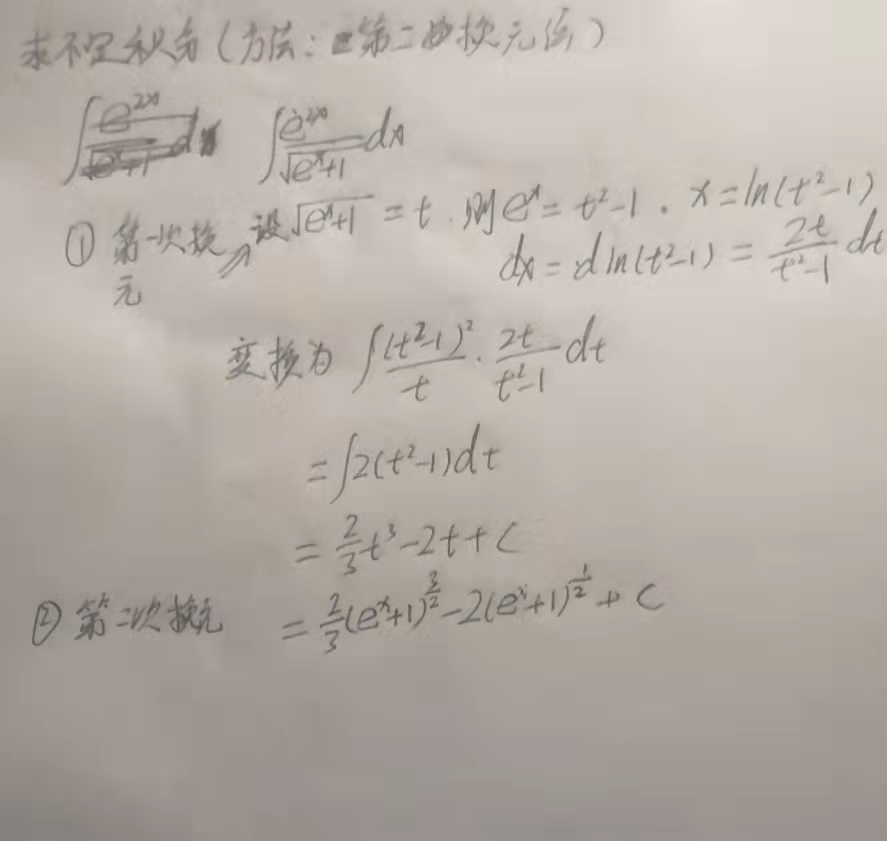 求不定积分(方法:第二类换元法)
∫e^{2x}/√(e^x+1) dx ∫e^{2x}/√(e^x+1) dx
① 第一次换元 ⇒ 设√(e^x+1) = t. 则e^x = t²-1. x = ln(t²-1)
dx = d ln(t²-1) = 2t/(t²-1) dt
变换为 ∫(t²-1)²/t · 2t/(t²-1) dt
= ∫2(t²-1)dt
= 2/3 t³ - 2t + C
② 第二次换元 = 2/3 (e^x+1)^{3/2} - 2(e^x+1)^{1/2} + C